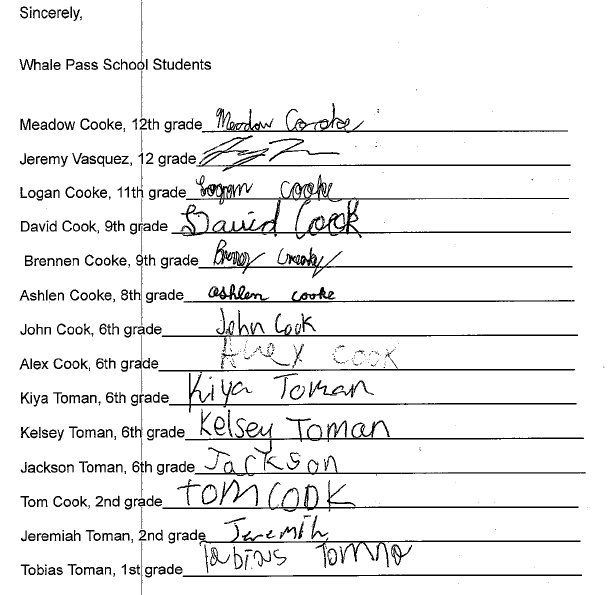 Sincerely,
Whale Pass School Students
Meadow Cooke, 12th grade Meadow Cooke
Jeremy Vasquez, 12 grade
Logan Cooke, 11th grade Logan Cooke
David Cook, 9th grade David Cook
Brennen Cooke, 9th grade
Ashlen Cooke, 8th grade ashlen cooke
John Cook, 6th grade John Cook
Alex Cook, 6th grade Alex Cook
Kiya Toman, 6th grade Kiya Toman
Kelsey Toman, 6th grade Kelsey Toman
Jackson Toman, 6th grade Jackson
Tom Cook, 2nd grade TOM COOK
Jeremiah Toman, 2nd grade Jeremih
Tobias Toman, 1st grade